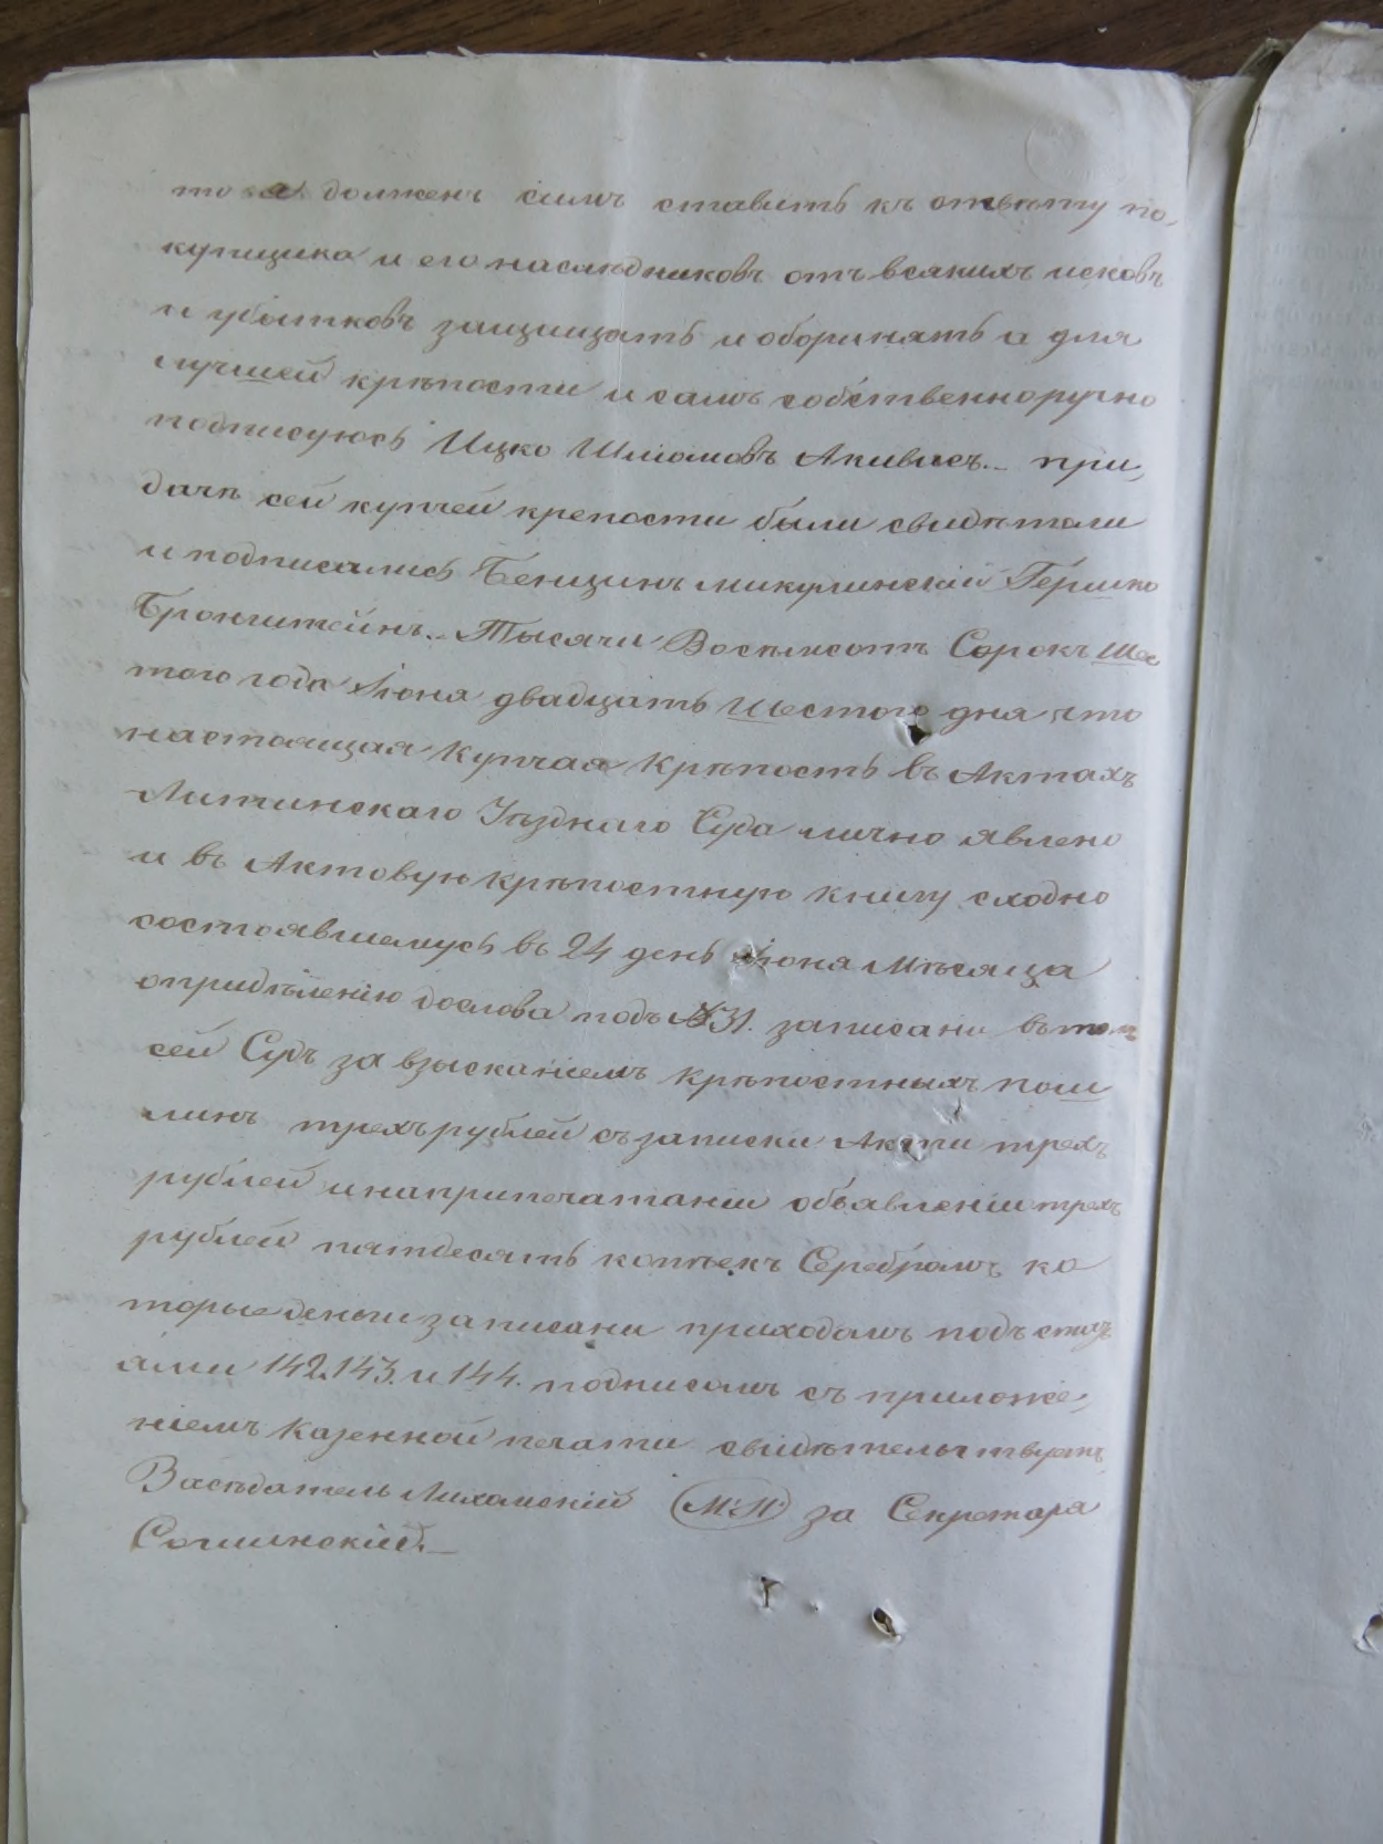 то я долженъ симъ ставить къ отвѣту по,
купщика и его наслѣдниковъ отъ всякихъ исковъ
и убытковъ защищать и оборинять а для
лучшей крѣпости и самъ собственноручно
подписуюсь Ицко Шліомовъ Акивисъ.– при,
дачѣ сей купчей крепости были свидѣтели
и подписались Бенционъ Микулинскій Гершко
Бронштейнъ.– Тысячи Восемсотъ Сорокъ Шес
того года Іюня двадцать шестого дня что
настоящая Купчая Крѣпость въ Актахъ
Литинскаго Уѣзднаго Суда лично явлено
и въ Актовую Крѣпостную книгу сходно
состоявшемусь въ 24 день Іюня Мѣсяца
опридѣленію дослова подъ №31. записани въ
сей Судъ за взысканіемъ Крѣпостныхъ пош
линъ трехъ рублей съ записки Акти трехъ
рублей и на припечатаніи объявленіи трехъ
рублей пятдесять копѣекъ Серебромъ ко
торые деньги записани приходомъ подъ стат
ями 142. 143. и 144. подписомъ съ приложе,
ніемъ Казенной печати свидѣтельствуетъ
Засѣдатель (М.П.) за Секретаря